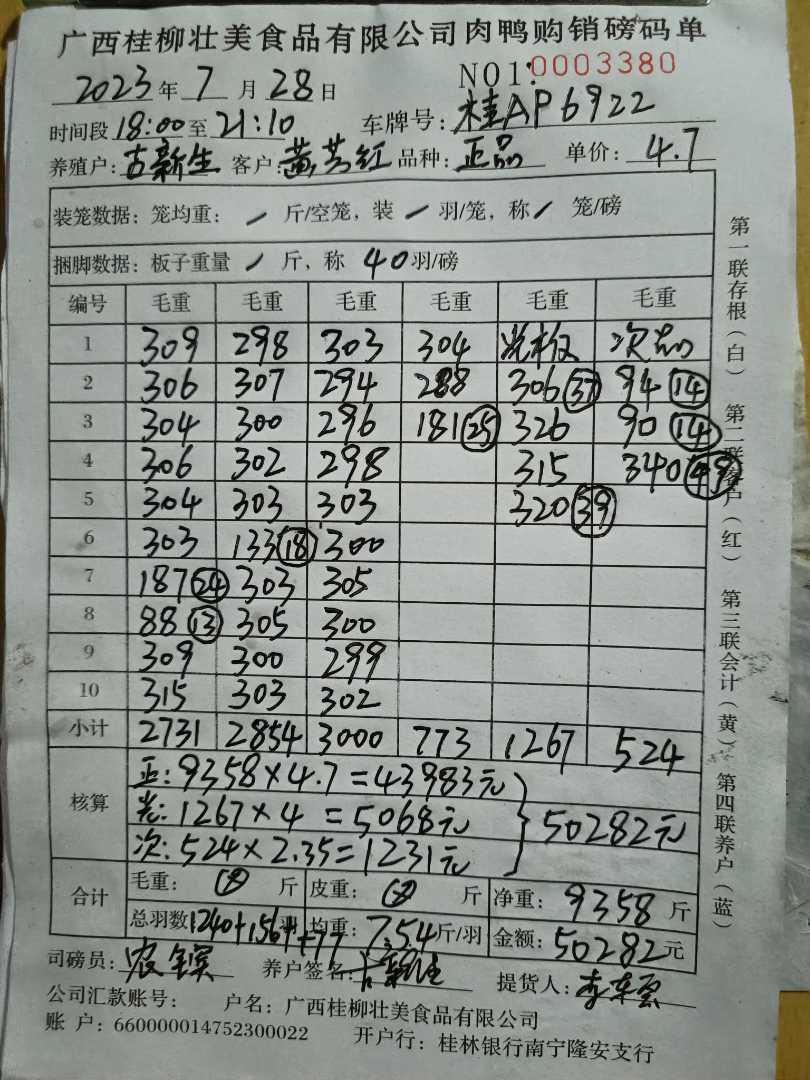 广西桂柳壮美食品有限公司肉鸭购销磅码单
2023年 7 月 28 日 NO1:0003380
时间段 18:00 至 21:10 车牌号: 桂AP6922
养殖户: 古新生 客户: 黄芳红 品种: 正品 单价: 4.7
装笼数据: 笼均重: / 斤/空笼, 装 / 羽/笼, 称 / 笼/磅
捆脚数据: 板子重量 / 斤, 称 40 羽/磅
编号 毛重 毛重 毛重 毛重 毛重 毛重
1 309 298 303 304 光板 次品
2 306 307 294 288 306 (37) 94 (14)
3 304 300 296 181 (25) 326 90 (14)
4 306 302 298 315 340 (49)
5 304 303 303 320 (39)
6 303 133 (18) 300
7 187 (24) 303 305
8 88 (13) 305 300
9 309 300 299
10 315 303 302
小计 2731 2854 3000 773 1267 524
核算 正: 9358×4.7=43983元
光: 1267×4=5068元 } 50282元
次: 524×2.35=1231元
合计 毛重: 斤 皮重: 斤 净重: 9358 斤
总羽数 1240+156+77 羽 均重: 7.54 斤/羽 金额: 50282 元
司磅员: 养户签名: 古新生 提货人:
公司汇款账号: 户名: 广西桂柳壮美食品有限公司
账 户: 660000014752300022 开户行: 桂林银行南宁隆安支行
第一联存根(白) 第二联客户(红) 第三联会计(黄) 第四联养户(蓝)